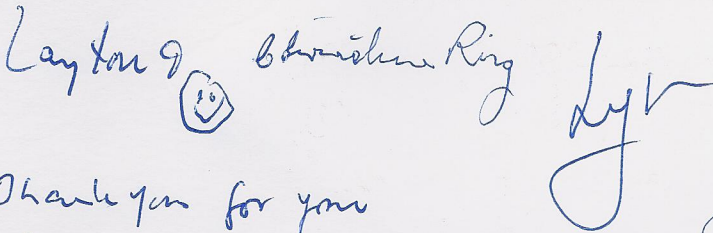 Layton & Christine Ring
Thank you for your